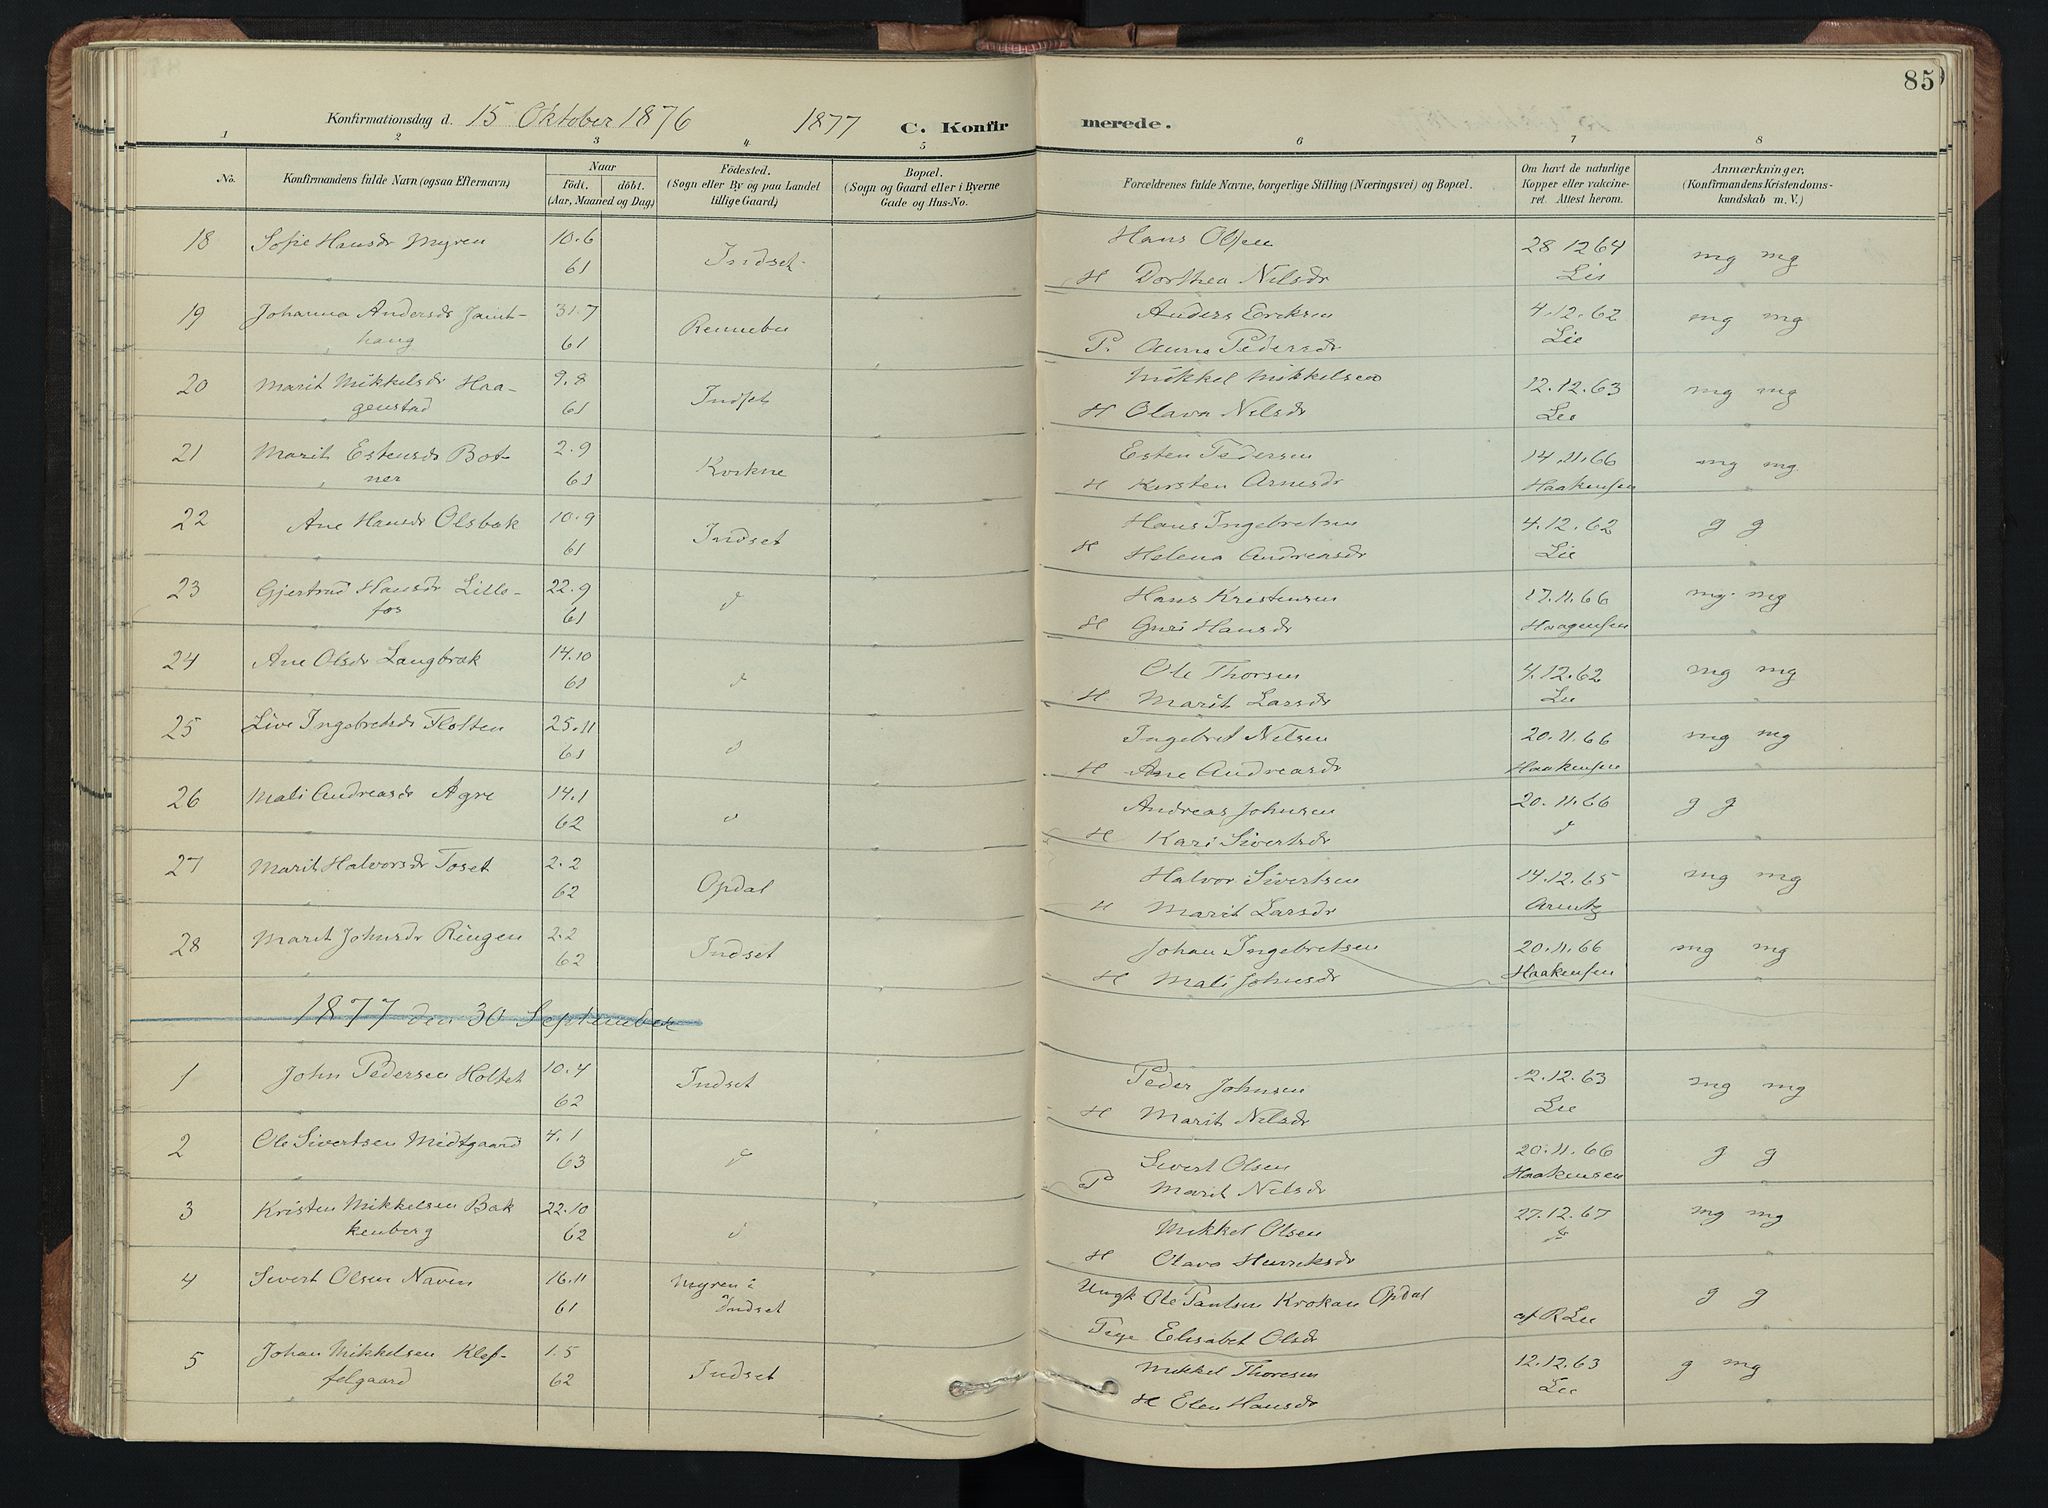 85
Konfirmationsdag d. 15 Oktober 1876 1877 C. Konfirmerede.
1 2 3 4 5 6 7 8
No. Konfirmandens fulde Navn (ogsaa Efternavn) Naar födt. döbt. (Aar, Maaned og Dag) Födested. (Sogn eller By og paa Landet tillige Gaard) Bopæl. (Sogn og Gaard eller i Byerne Gade og Hus-No. Forældrenes fulde Navne, borgerlige Stilling (Næringsvei) og Bopæl. Om havt de naturlige Kopper eller vakcineret. Attest herom. Anmærkninger, (Konfirmandens Kristendomskundskab m. V.)
18 Sofie Hansdr Myren 10.6 Indset Hans Olsen 28 12 64 mg mg
61 H Dorthea Nilsdr Lie
19 Johanna Andersdr Jamt- 31.7 Rennebu Anders Eriksen 4.12.62 mg mg
haug 61 P. Pedersdr Lie
20 Marit Mikkelsdr Haa- 9.8 Indset Mikkel Mikkelsen 12.12.63 mg mg
genstad 61 H Olava Nelsdr Lie
21 Marit Estensdr Bot- 2.9 Kvikne Esten Pedersen 14.11.66 mg mg.
ner 61 H Kirsten Arnesdr Haakensen
22 Ane Hansdr Olsbak 10.9 Indset Hans Ingebretsen 4.12.62 g g
61 H Helena Andreasdr Lie
23 Gjertrud Hansdr Lille- 22.9 d Hans Kristensen 17.11.66 mg. mg
fos 61 H Guri Hansdr Haagensen
24 Ane Olsdr Langbrak 14.10 d Ole Thorsen 4.12.62 mg mg
61 H Marit Larsdr Lie
25 Live Ingebretsdr Flotten 25.11 d Ingebret Nelsen 20.11.66 mg mg
61 H Ane Andreasdr Haakensen
26 Mali Andreasdr Agre 14.1 d Andreas Johnsen 20.11.66 g g
62 H Kari Sivertsdr d
27 Marit Halvorsdr Toset 2.2 Opdal Halvor Sivertsen 14.12.65 mg mg
62 H Marit Larsdr Arentz
28 Marit Johnsdr Ringen 2.2 Indset Johan Ingebretsen 20.11.66 mg mg
62 H Mali Johnsdr Haakensen
1877 den 30 September
1 John Pedersen Holtet 10.4 Indset Peder Johnsen 12.12.63 mg mg
62 H Marit Nilsdr Lie
2 Ole Sivertsen Midtgaard 4.1 d Sivert Olsen 20.11.66 g g
63 P Marit Nilsdr Haakensen
3 Kristen Mikkelsen Bak 22.10 d Mikkel Olsen 27.12.67 mg mg
kenberg 62 H Olava Henriksdr
4 Sivert Olsen Naven 16.11 Myren i Indset Ungk Ole Paulsen Krokan Opdal af R Lie g g
61 Pige Elisabet Olsdr
5 Johan Mikkelsen Klef- 1.5 Indset Mikkel Thoresen 12.12.63 g mg
felgaard 62 H Elen Hansdr Lie